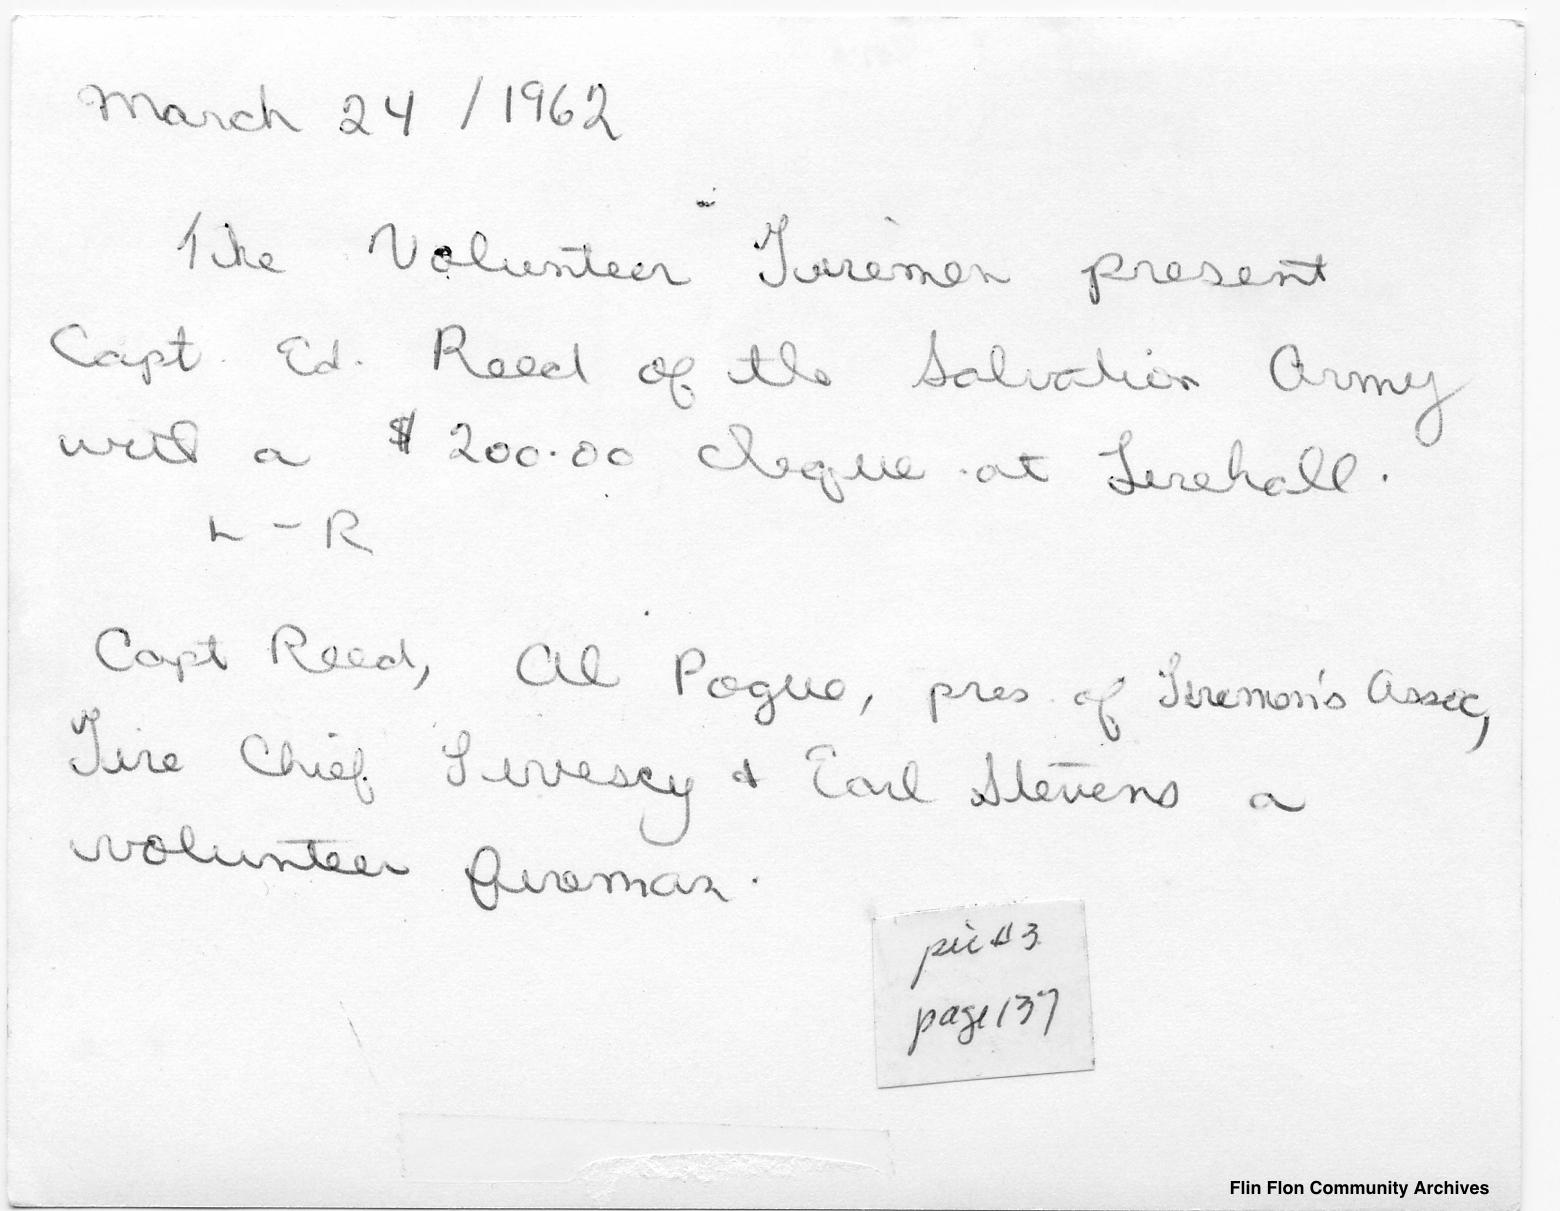 March 24 / 1962
The Volunteer Firemen present
Capt. Ed. Reed of the Salvation Army
with a $200.00 cheque at Firehall.
L - R
Capt Reed, Al Pogue, pres. of Firemen's Assoc,
Fire Chief Livesey & Earl Stevens a
volunteer fireman.
pic #3
page 137
Flin Flon Community Archives